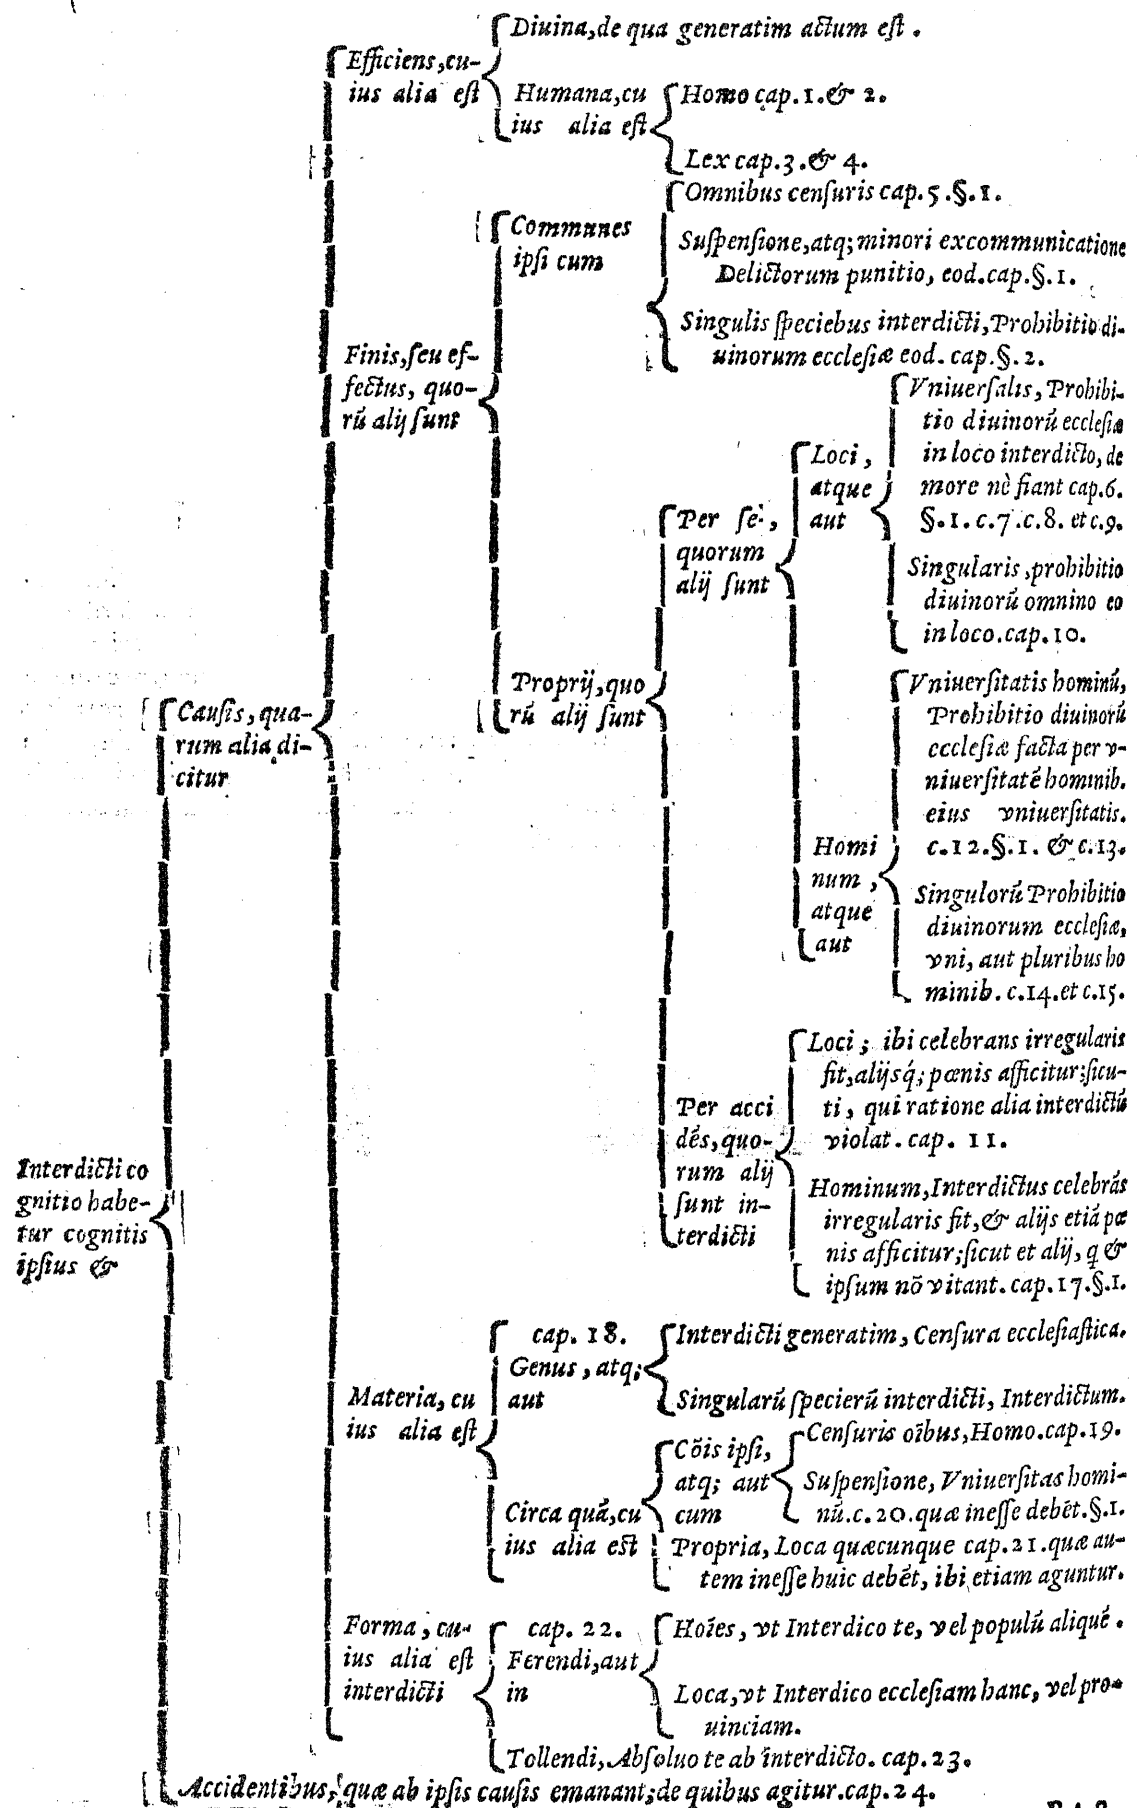 Interdicti co
gnitio habe-
tur cognitis
ipſius &
Cauſis, qua-
rum alia di-
citur
Efficiens, cu-
ius alia eſt
Diuina, de qua generatim actum eſt .
Humana, cu
ius alia eſt
Homo cap. 1. & 2.
Lex cap. 3. & 4.
Finis, ſeu ef-
fectus, quo-
rū alij ſunt
Communes
ipſi cum
Omnibus cenſuris cap. 5. §. 1.
Suſpenſione, atq; minori excommunicatione
Delictorum punitio, eod. cap. §. 1.
Singulis ſpeciebus interdicti, Prohibitio di-
uinorum eccleſiæ eod. cap. §. 2.
Proprij, quo
rū alij ſunt
Per ſe,
quorum
alij ſunt
Loci,
atque
aut
Vniuerſalis, Prohibi-
tio diuinorū eccleſiæ
in loco interdicto, de
more nè fiant cap. 6.
§. 1. c. 7. c. 8. et c. 9.
Singularis, prohibitio
diuinorū omnino eo
in loco. cap. 10.
Homi
num,
atque
aut
Vniuerſitatis hominū,
Prohibitio diuinorū
eccleſiæ facta per v-
niuerſitatē hominib.
eius vniuerſitatis.
c. 12. §. 1. & c. 13.
Singulorū Prohibitio
diuinorum eccleſiæ,
vni, aut pluribus ho
minib. c. 14. et c. 15.
Per acci
dēs, quo-
rum alij
ſunt in-
terdicti
Loci; ibi celebrans irregularis
fit, alijsq́; pœnis afficitur: ſicu-
ti, qui ratione alia interdictū
violat. cap. 11.
Hominum, Interdictus celebrās
irregularis fit, & alijs etiā pœ
nis afficitur; ſicut et alij, q &
ipſum nō vitant. cap. 17. §. 1.
Materia, cu
ius alia eſt
cap. 18.
Genus, atq;
aut
Interdicti generatim, Cenſura eccleſiaſtica.
Singularū ſpecierū interdicti, Interdictum.
Circa quā, cu
ius alia eſt
Cōis ipſi,
atq; aut
cum
Cenſuris oībus, Homo. cap. 19.
Suſpenſione, Vniuerſitas homi-
nū. c. 20. quæ ineſſe debēt. §. 1.
Propria, Loca quæcunque cap. 21. quæ au-
tem ineſſe huic debēt, ibi etiam aguntur.
Forma, cu-
ius alia eſt
interdicti
cap. 22.
Ferendi, aut
in
Hoīes, vt Interdico te, vel populū aliquē.
Loca, vt Interdico eccleſiam hanc, vel pro-
uinciam.
Tollendi, Abſoluo te ab interdicto. cap. 23.
Accidentibus, quæ ab ipſis cauſis emanant; de quibus agitur. cap. 24.